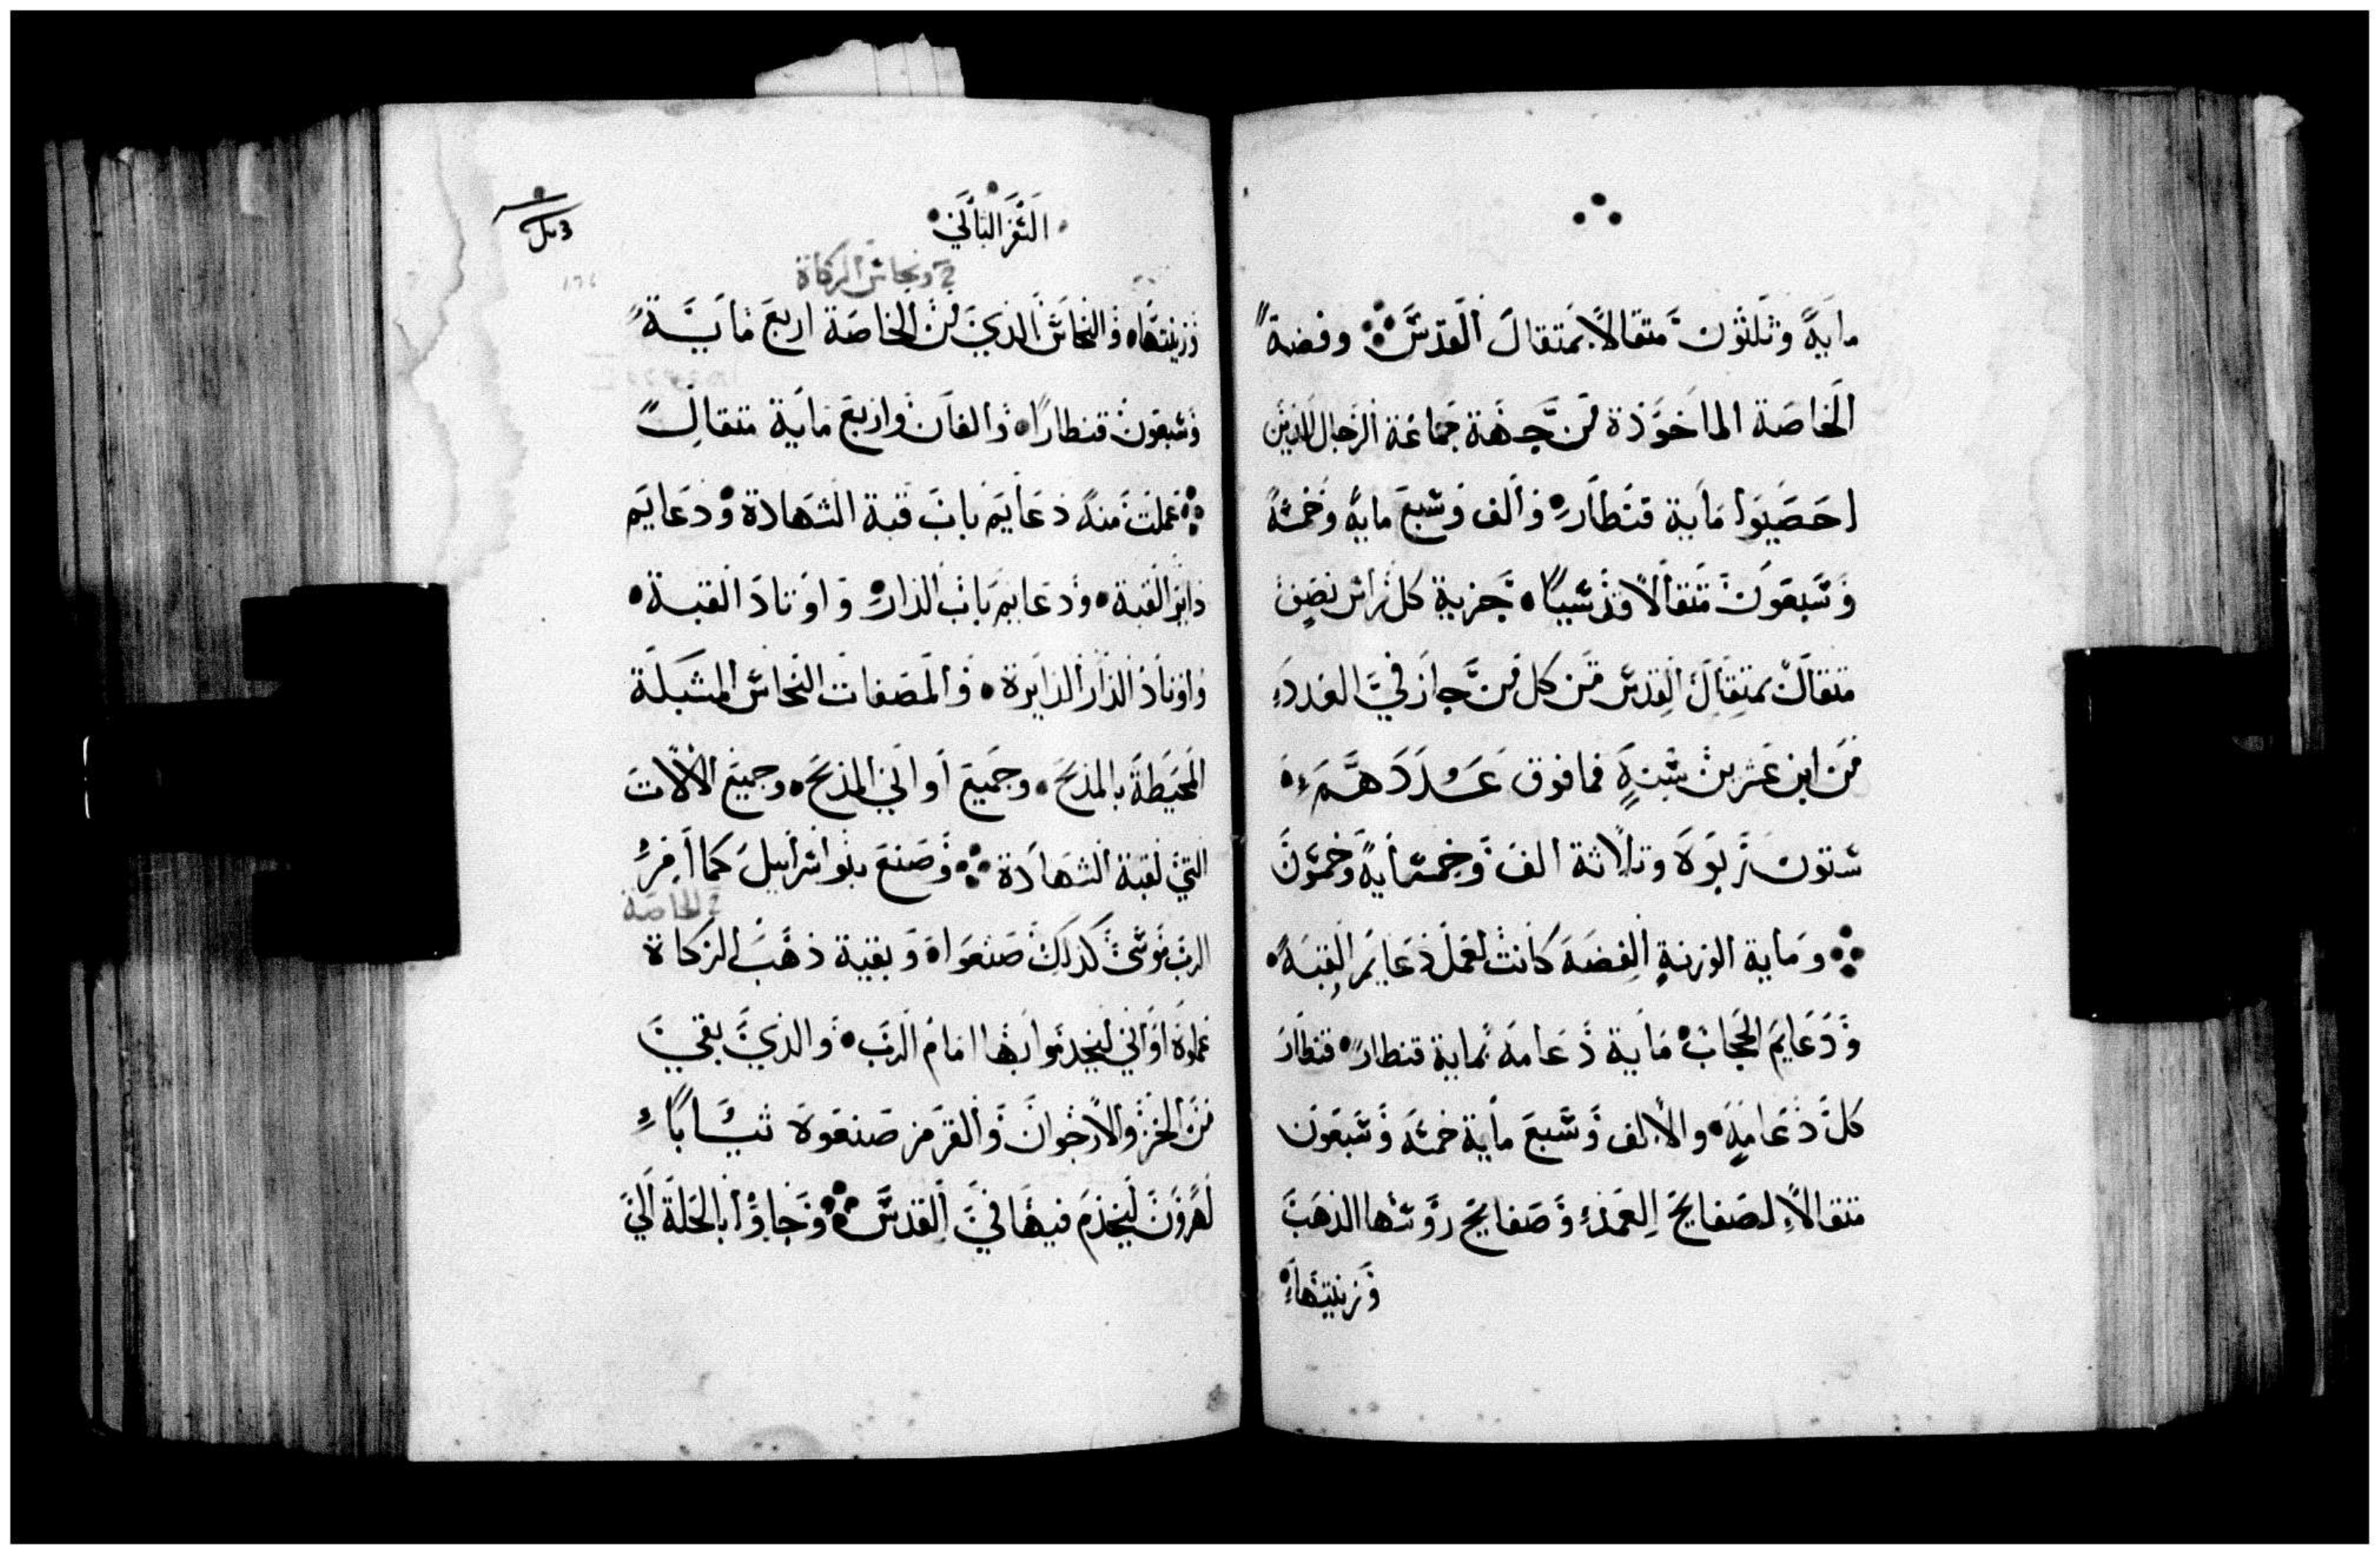 مايةً وثلثون متقالاً بمتقال القدس ⁘ وفضة
الخاصة الماخوذة من جهة جماعة الرجال الذين
احصيوا ماية قنطار والف وسبع ماية وخمسة
وسبعون متقالاً ونسيبًا • جزية كل راس نصف
متقال بمتقال القدس من كل من جاز في العدد
من ابن عشرين سنة فما فوق عددهم
ستون ربوة وتلاتة الف وخمسماية وخمسون
⁘ وماية الوزنة الفضة كانت لعمل دعايم القبة •
ودعايم الحجاب • ماية دعامة بماية قنطار • قنطار
كل دعامة • والالف وسبع ماية خمسة وسبعون
متقالاً لصفايح العمد وصفايح روسها الذهب
وزينتها
الثفر الثاني
3 مل
ح ونحاس الزكاة
وزينتها ه والنحاس الذي من الخاصة اربع ماية
وسبعون قنطارًا • والفان واربع ماية متقال
⁘ عملت منه دعايم باب قبة الشهادة • ودعايم
داير القبة • ودعايم باب الدار • واوتاد القبة •
واوتاد الدار الدايرة • والمصفات النحاس المشبكة
المحيطة بالمذبح • وجميع أواني المذبح • وجميع الالات
التي لقبة الشهادة ⁘ وصنع بنو اسراييل كما أمر
ح الخاصة
الرب موسى كذلك صنعوا ه وبقية ذهب الزكاة
عملوه اواني ليخدموا بها امام الرب • والذي بقي
من الخز والارجوان والقرمز صنعوه ثيابًا
لهرون ليخدم فيها في القدس ⁘ وجاوا بالحلة الى